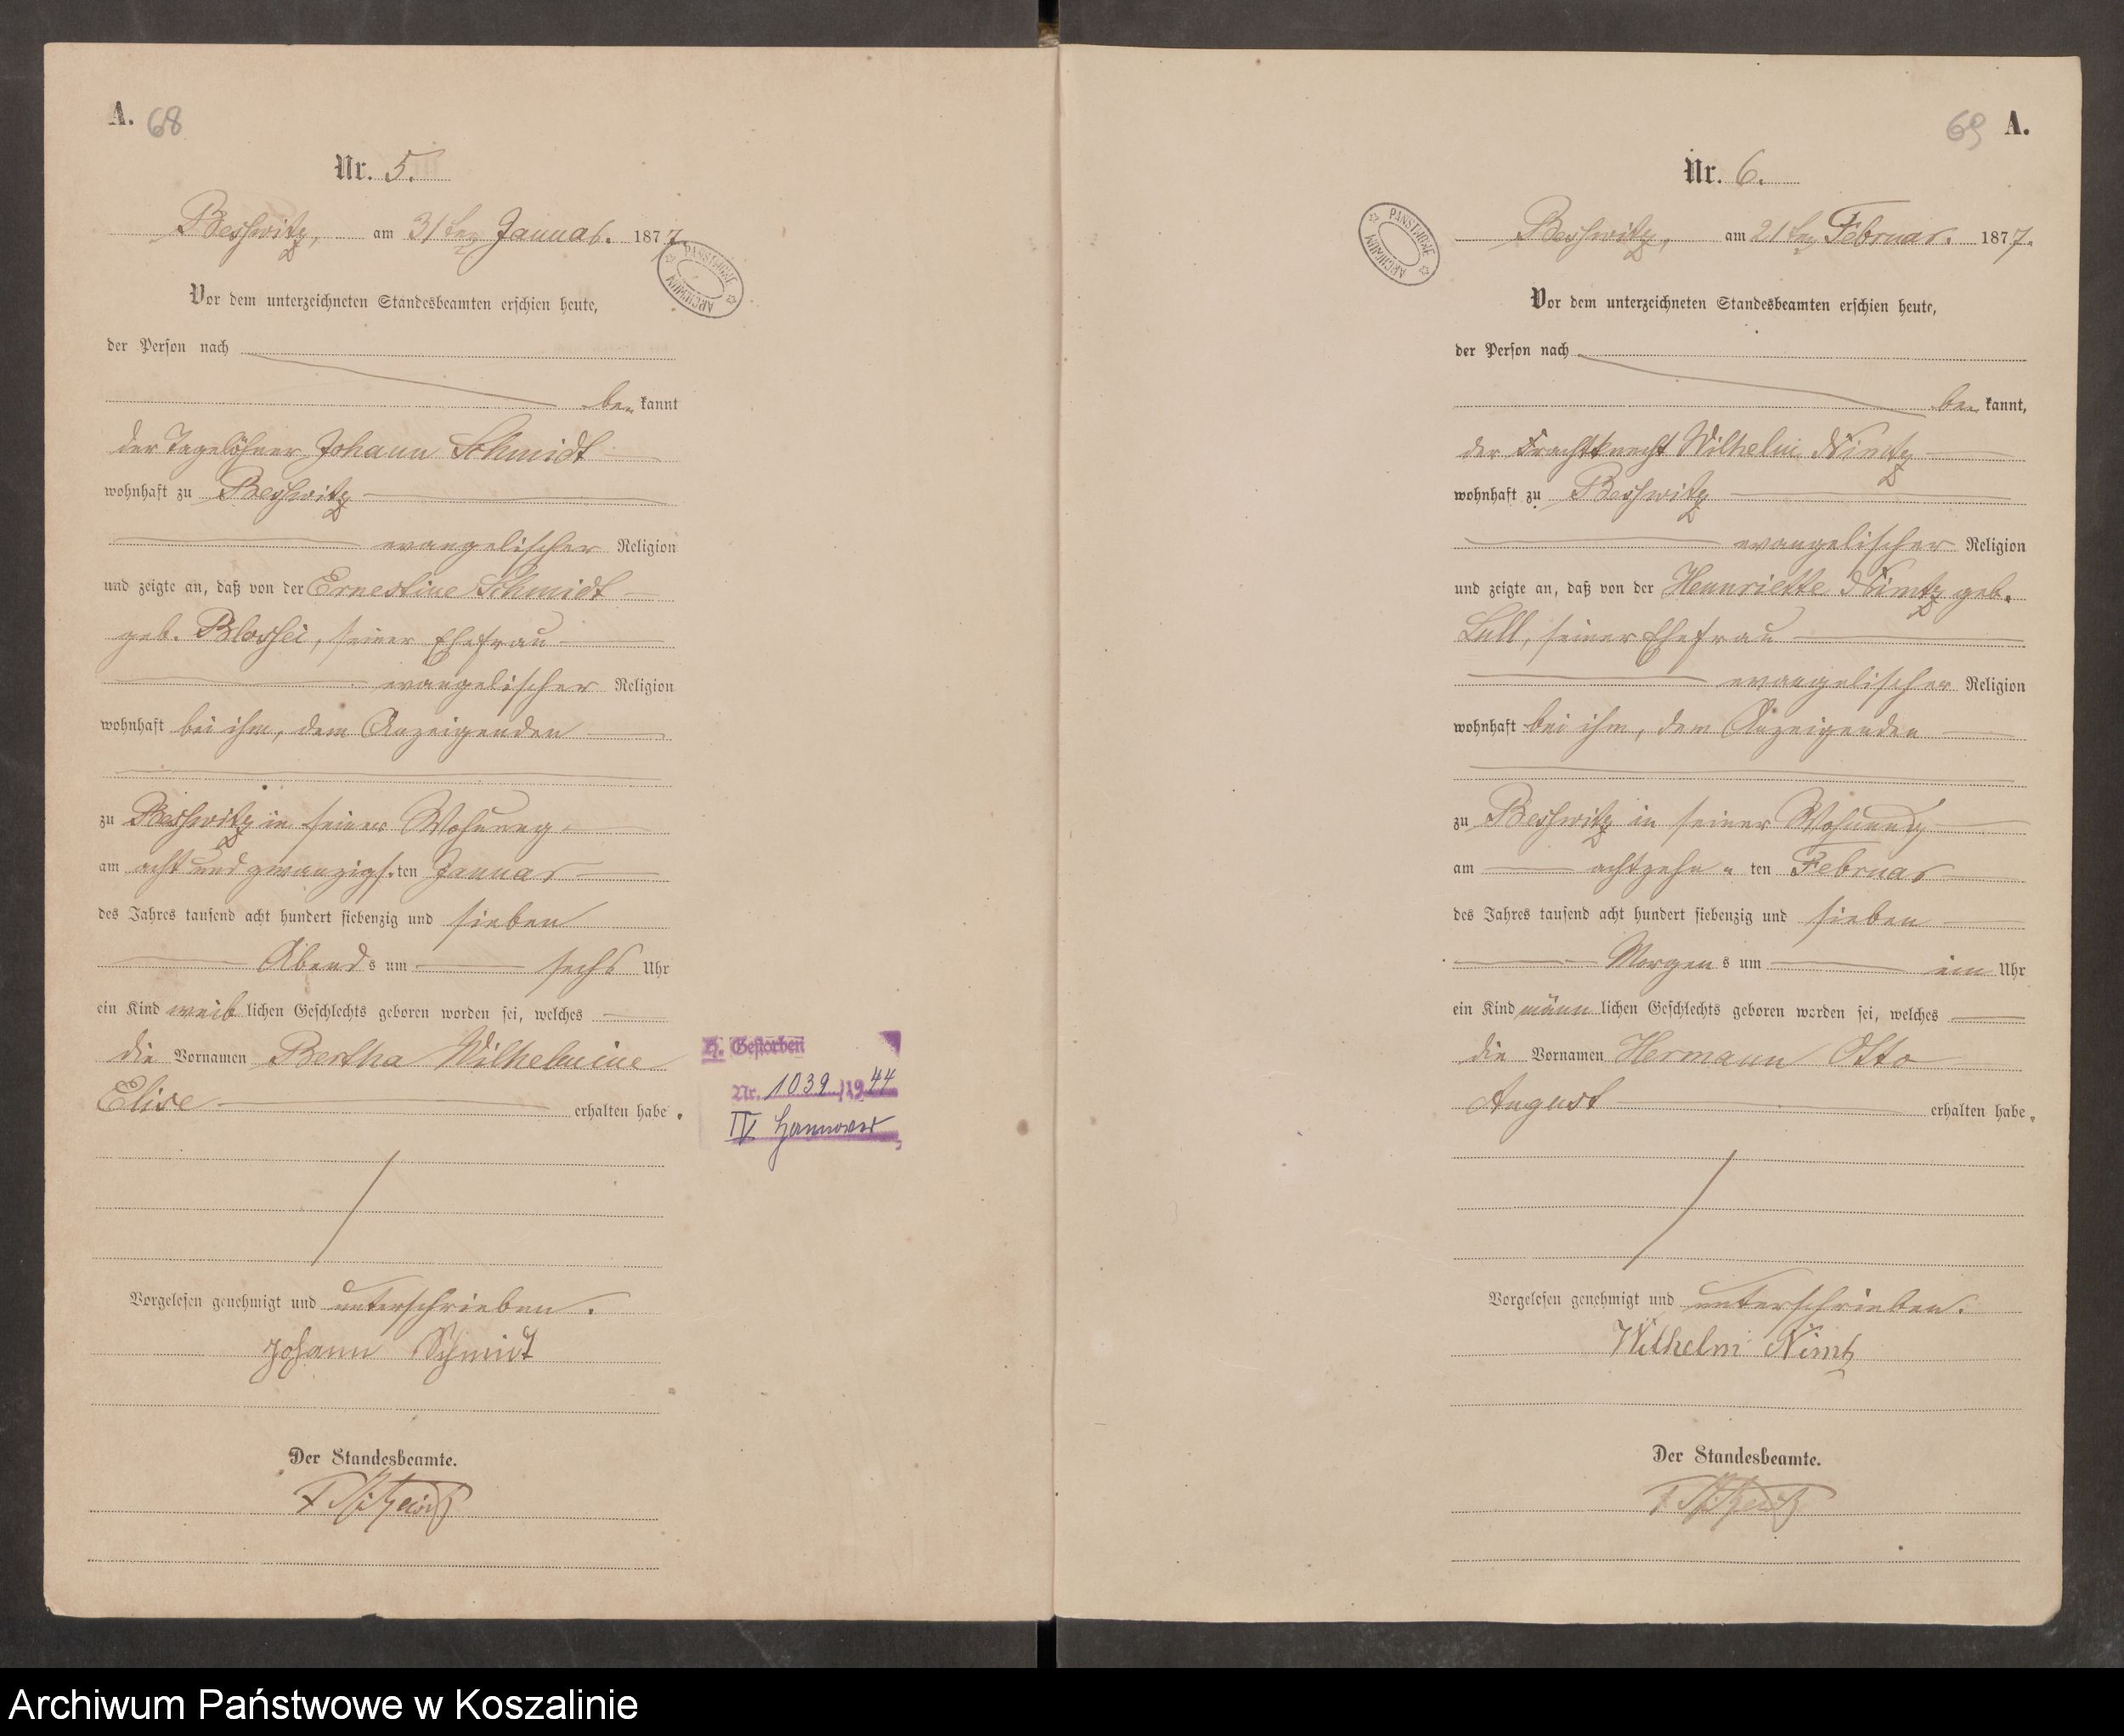 A. 68
Nr. 5.
Besswitz, am 31ten Januar. 1877.
PANSTWOWE ARCHIWUM
Vor dem unterzeichneten Standesbeamten erschien heute,
der Person nach
be kannt
der Tagelöhner Johann Schmidt
wohnhaft zu Besswitz
evangelischer Religion
und zeigte an, daß von der Ernestine Schmidt
geb. seiner Ehefrau
evangelischer Religion
wohnhaft bei ihm, dem Anzeigenden
zu Besswitz in seiner Wohnung
am acht und zwanzigs.ten Januar
des Jahres tausend acht hundert siebenzig und sieben
Abends um sechs Uhr
ein Kind weib lichen Geschlechts geboren worden sei, welches
die Vornamen Bertha Wilhelmine
Elise erhalten habe.
H. Gestorben
Nr. 1039/1944
IV Hannover
Vorgelesen genehmigt und unterschrieben.
Johann Schmidt
Der Standesbeamte.
69 A.
Nr. 6.
PANSTWOWE ARCHIWUM
Besswitz, am 21ten Februar. 1877.
Vor dem unterzeichneten Standesbeamten erschien heute,
der Person nach
be kannt,
der Frachtknecht Wilhelm Nimtz
wohnhaft zu Besswitz
evangelischer Religion
und zeigte an, daß von der Henriette Nimtz geb.
Lull, seiner Ehefrau
evangelischer Religion
wohnhaft bei ihm, dem Anzeigenden
zu Besswitz in seiner Wohnung
am achtzehn ten Februar
des Jahres tausend acht hundert siebenzig und sieben
Morgens um ein Uhr
ein Kind männ lichen Geschlechts geboren worden sei, welches
die Vornamen Hermann Otto
August erhalten habe.
Vorgelesen genehmigt und unterschrieben.
Wilhelm Nimtz
Der Standesbeamte.
Archiwum Państwowe w Koszalinie